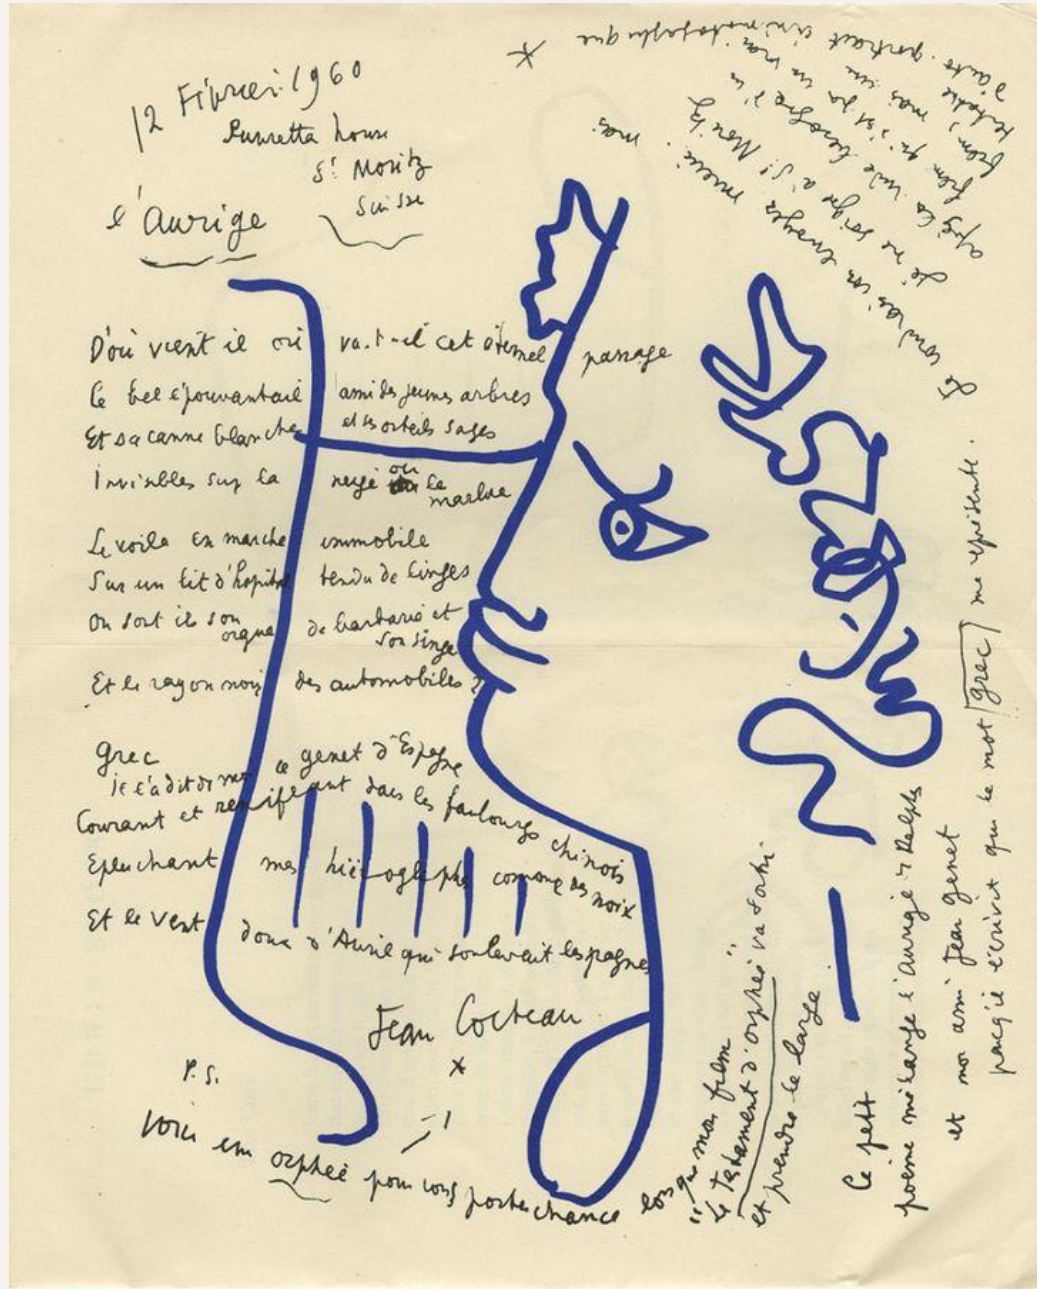 12 Février 1960
Suvretta house
St Moritz
Suisse
l'Aurige
D'où vient il où va-t-il cet éternel passage
Ce bel épouvantail ami des jeunes arbres
Et sa canne blanche et ses orteils sages
Invisibles sur la neige ou le marbre
Le voila en marche immobile
Sur un lit d'hopital tendu de linges
Où sont ils son orgue de barbarie et son singe
Et le rayon noir des automobiles ?
grec
ce genet d'Espagne
Courant et reniflant dans les faubourgs chinois
Epluchant mes hiéroglyphes comme des noix
Et le vent doux d'Avril qui soulevait les pagnes
Jean Cocteau
P.S.
Voici un orphée pour vous porter chance lorsque mon film
"le testament d'orphée" va sortir
et prendre le large
Ce petit
poème mélange l'aurige de Delphes
et mon ami Jean genet
parcequ'il écrivit que le mot grec me représente.
Je voudrais vous envoyer mieux. mais
Je me soigne à St Moritz
film, mais une
d'auto-portrait cinématographique